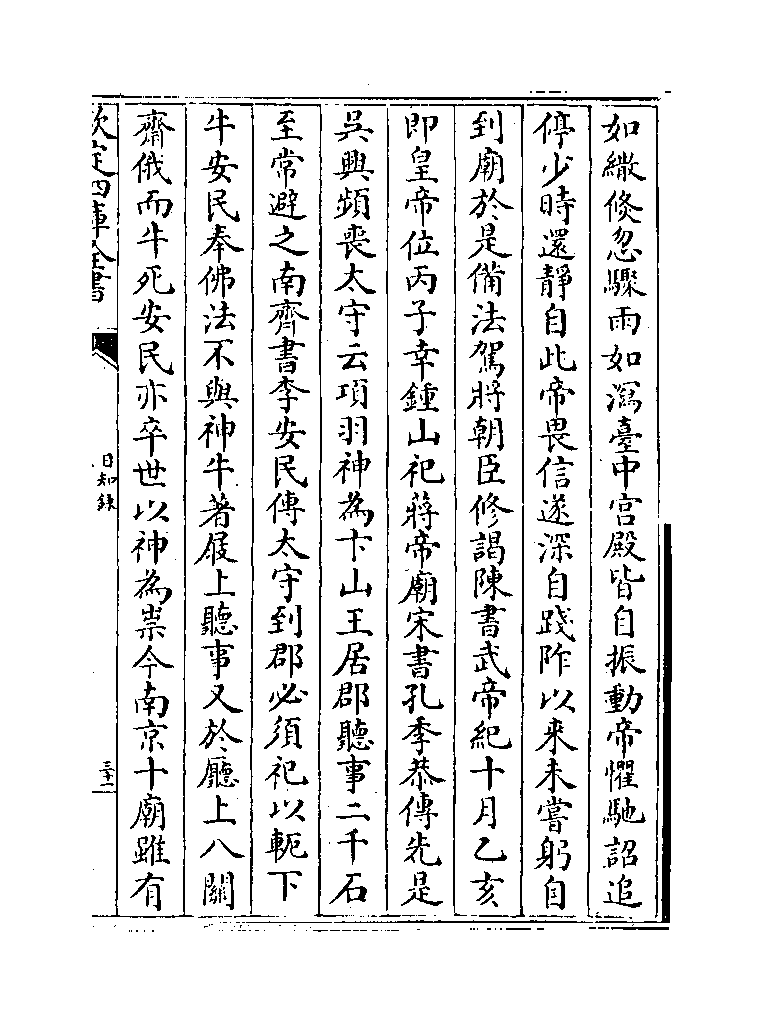 如繖倏忽驟雨如瀉臺中宫殿皆自振動帝懼馳詔追
停少時還靜自此帝畏信遂深自踐阼以来未嘗躬自
到廟於是備法駕將朝臣修謁陳書武帝紀十月乙亥
即皇帝位丙子幸鍾山祀蔣帝廟宋書孔季恭傳先是
吳興頻喪太守云項羽神為卞山王居郡聽事二千石
至常避之南齊書李安民傳太守到郡必須祀以軛下
牛安民奉佛法不與神牛著屐上聽事又於廳上八關
齋俄而牛死安民亦卒世以神為祟今南京十廟雖有
欽定四庫全書
日知錄
三十二